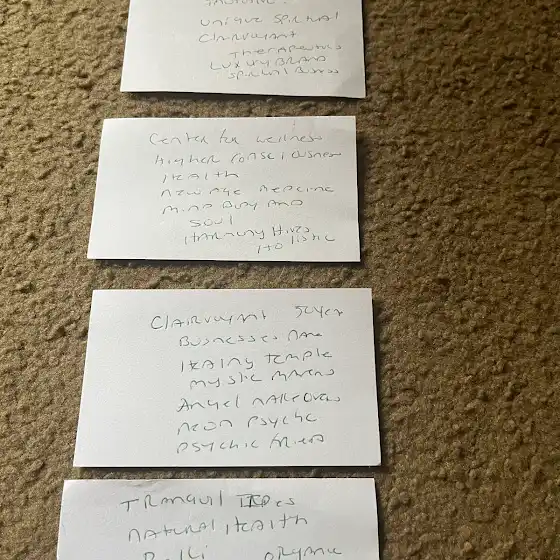 unique spiritual
Clairvoyant
Therapeutics
Luxury Brand
Spiritual Business
Center for wellness
Higher consciousness
Health
New Age Medicine
Mind Body And
Soul
Harmony Hives
Holistic
Clairvoyant
Businesses name
Healing Temple
Mystic Mavens
Angel makeovers
neon psychic
psychic friend
Tranquil
natural Health
organic